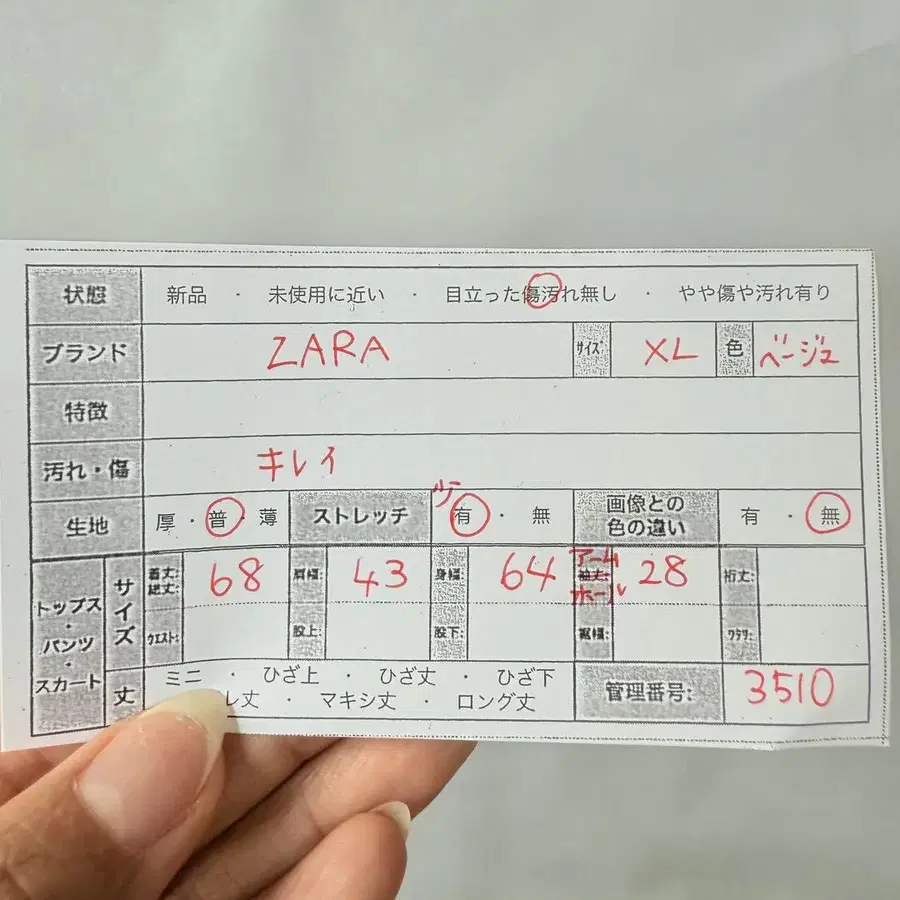 状態 新品 ・ 未使用に近い ・ 目立った傷汚れ無し ・ やや傷や汚れ有り
ブランド ZARA サイズ XL 色 ベージュ
特徴
汚れ・傷 キレイ
生地 厚・普・薄 ストレッチ 少 有 ・ 無 画像との色の違い 有 ・ 無
トップス・パンツ・スカート サイズ 着丈: 総丈: 68 肩幅: 43 身幅: 64 アーム 袖丈: ホール 28 裄丈:
ウエスト: 股上: 股下: 裾幅: ワタリ:
丈 ミニ ・ ひざ上 ・ ひざ丈 ・ ひざ下
レ丈 ・ マキシ丈 ・ ロング丈 管理番号: 3510